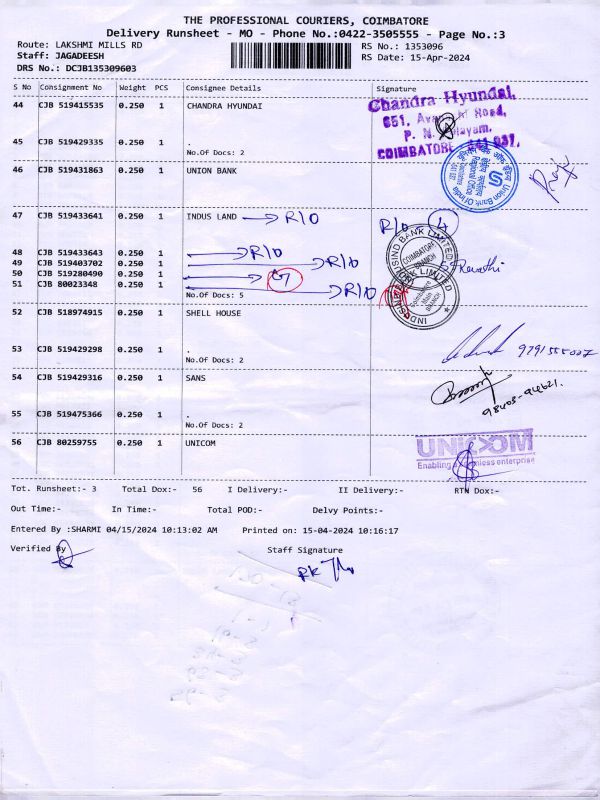 THE PROFESSIONAL COURIERS, COIMBATORE
Delivery Runsheet - MO - Phone No.:0422-3505555 - Page No.:3
Route: LAKSHMI MILLS RD RS No.: 1353096
Staff: JAGADEESH RS Date: 15-Apr-2024
DRS No.: DCJB135309603
S No Consignment No Weight PCS Consignee Details Signature
44 CJB 519415535 0.250 1 CHANDRA HYUNDAI
Chandra Hyundai,
COIMBATORE
45 CJB 519429335 0.250 1 .
No.Of Docs: 2
46 CJB 519431863 0.250 1 UNION BANK
Union Bank Of India
Regional Office
47 CJB 519433641 0.250 1 INDUS LAND R/O R/O 4
48 CJB 519433643 0.250 1 R/O
49 CJB 519403702 0.250 1 R/O
50 CJB 519280490 0.250 1
51 CJB 80023348 0.250 1 R/O
No.Of Docs: 5
COIMBATORE BRANCH
52 CJB 518974915 0.250 1 SHELL HOUSE
53 CJB 519429298 0.250 1 .
No.Of Docs: 2
54 CJB 519429316 0.250 1 SANS
55 CJB 519475366 0.250 1 .
No.Of Docs: 2
56 CJB 80259755 0.250 1 UNICOM
UNICOM
Enabling enterprise
Tot. Runsheet:- 3 Total Dox:- 56 I Delivery:- II Delivery:- RTN Dox:-
Out Time:- In Time:- Total POD:- Delvy Points:-
Entered By :SHARMI 04/15/2024 10:13:02 AM Printed on: 15-04-2024 10:16:17
Verified By Staff Signature